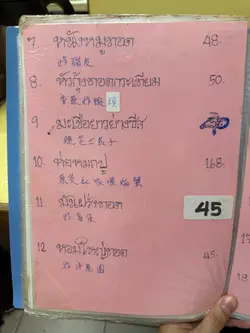 7. หนังหมูทอด 48.
炸豬皮
8. หัวกุ้งทอดกระเทียม 50.
香蒜炸蝦頭
9 มะเขือยาวย่างชีส
燒芝士茄子
10. ห่อหมกปู 168.
11. มันฝรั่งทอด 45
炸薯条
12 หอมใหญ่ทอด 45.
炸洋葱圈